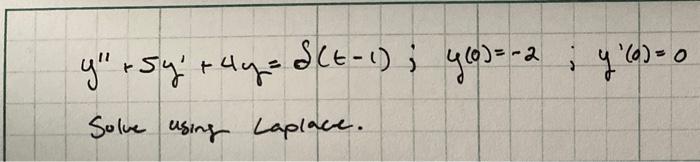 y'' + 5y' + 4y = δ(t-1) ; y(0)=-2 ; y'(0)=0
Solve using Laplace.